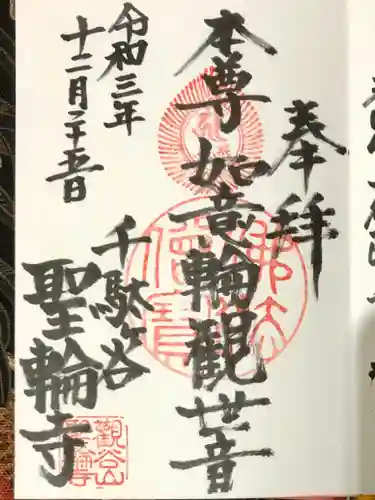 奉拝
本尊如意輪觀世音
令和三年
十二月二十五日
千駄ヶ谷
聖輪寺